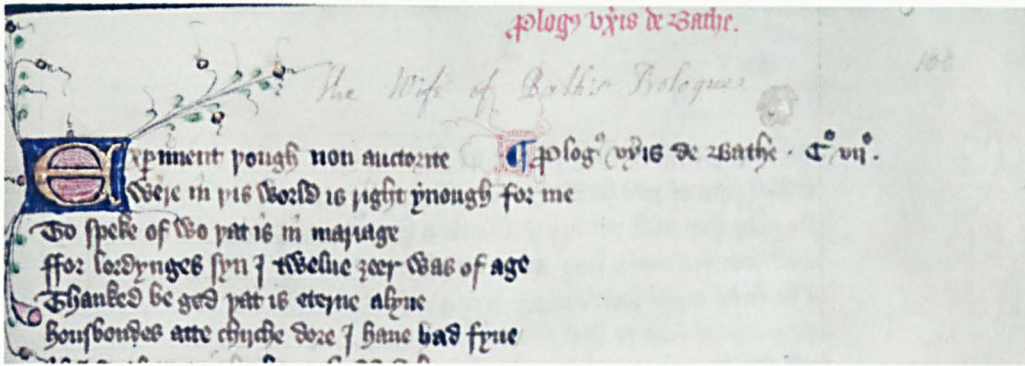 Plogꝯ vxis de Bathe.
The Wife of Bath's Prologue
108
Experiment þough non auctorite
¶ Plogꝰ vxis de Bathe . Cͦ vijͦ.
Were in þis world is right ynough for me
To speke of wo þat is in mariage
ffor lordynges syn I twelue ȝeer was of age
Thanked be god þat is eterne alyue
housbondes atte chirche dore I haue had fyue